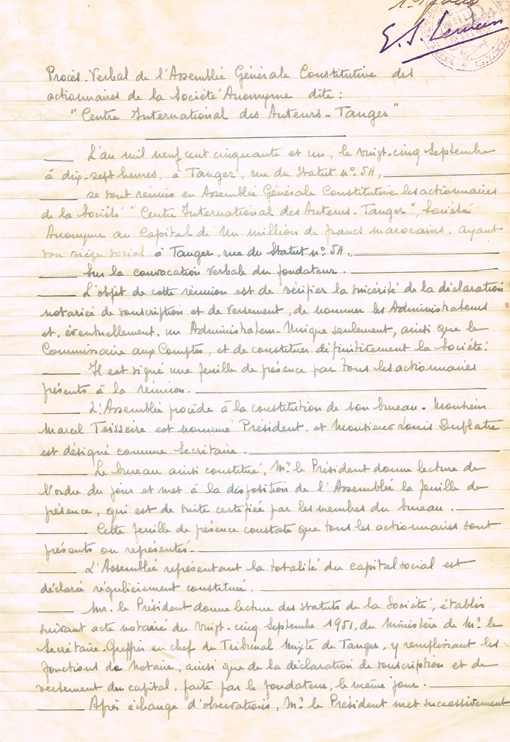 Procès-Verbal de l'Assemblée Générale Constitutive des
actionnaires de la Société Anonyme dite :
"Centre International des Auteurs - Tanger"
L'an mil neuf cent cinquante et un, le vingt-cinq Septembre
à dix-sept heures, à Tanger, rue du Statut nº 54,
se sont réunis en Assemblée Générale Constitutive les actionnaires
de la Société "Centre International des Auteurs - Tanger", Société
Anonyme au Capital de Un million de francs marocains, ayant
son siège social à Tanger, rue du Statut nº 54.
Sur la convocation verbale du fondateur.
L'objet de cette réunion est de vérifier la sincérité de la déclaration
notariée de souscription et de versement, de nommer les Administrateurs
et, éventuellement, un Administrateur-Unique seulement, ainsi que le
Commissaire aux Comptes, et de constituer définitivement la Société.
Il est signé une feuille de présence par tous les actionnaires
présents à la réunion.
L'Assemblée procède à la constitution de son bureau - Monsieur
Marcel Teisseire est nommé Président, et Monsieur Louis
est désigné comme Secrétaire.
Le bureau ainsi constitué, Mr. le Président donne lecture de
l'ordre du jour et met à la disposition de l'Assemblée la feuille de
présence, qui est de suite certifiée par les membres du bureau.
Cette feuille de présence constate que tous les actionnaires sont
présents ou représentés.
L'Assemblée représentant la totalité du capital social est
déclarée régulièrement constituée.
Mr. le Président donne lecture des statuts de la Société, établis
suivant acte notarié du vingt-cinq Septembre 1951, du Ministère de Mr. le
Secrétaire-Greffier en chef du Tribunal Mixte de Tanger, y remplissant les
fonctions de Notaire, ainsi que de la déclaration de souscription et de
versement du capital, faite par le fondateur, le même jour.
Après échange d'observations, Mr. le Président met successivement